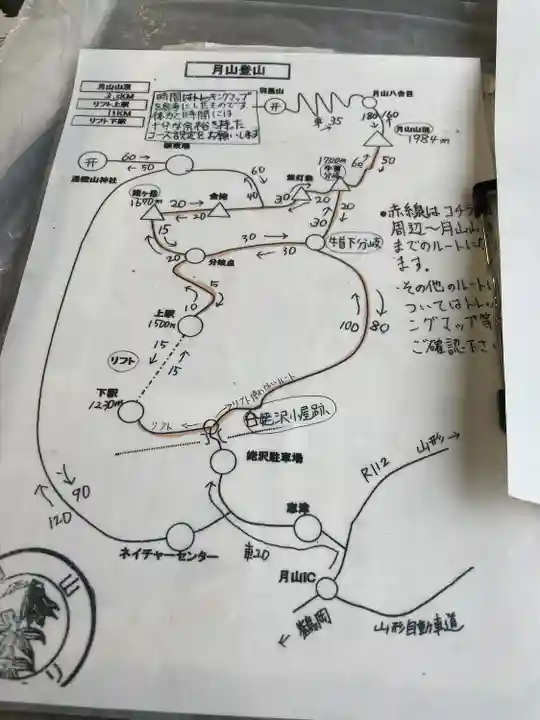 月山登山
月山山頂
リフト上駅
11KM
リフト下駅
時間はトレッキングマップ
を参考にしたものです。
体力と時間には
十分な余裕を持った
コース設定をお願いします
羽黒山
开
車 35
月山八合目
180
160
月山山頂
1984m
50
60
1700m
牛首
开
60
50
湯殿山神社
装束場
60
40
姥ヶ岳
1670m
20
金姥
20
紫灯森
20
30
20
30
15
20
分岐点
30
30
牛首下分岐
5
10
上駅
1500m
15
リフト
15
下駅
1230m
100
80
リフト使わないルート
リフト
5
姥沢小屋跡
姥沢駐車場
90
120
ネイチャーセンター
志津
車20
月山IC
R112
山形
鶴岡
山形自動車道
●赤線はコチラ
周辺〜月山山
までのルートに
ます。
・その他のルートに
ついてはトレッ
ングマップ等
ご確認下さい
山
リ